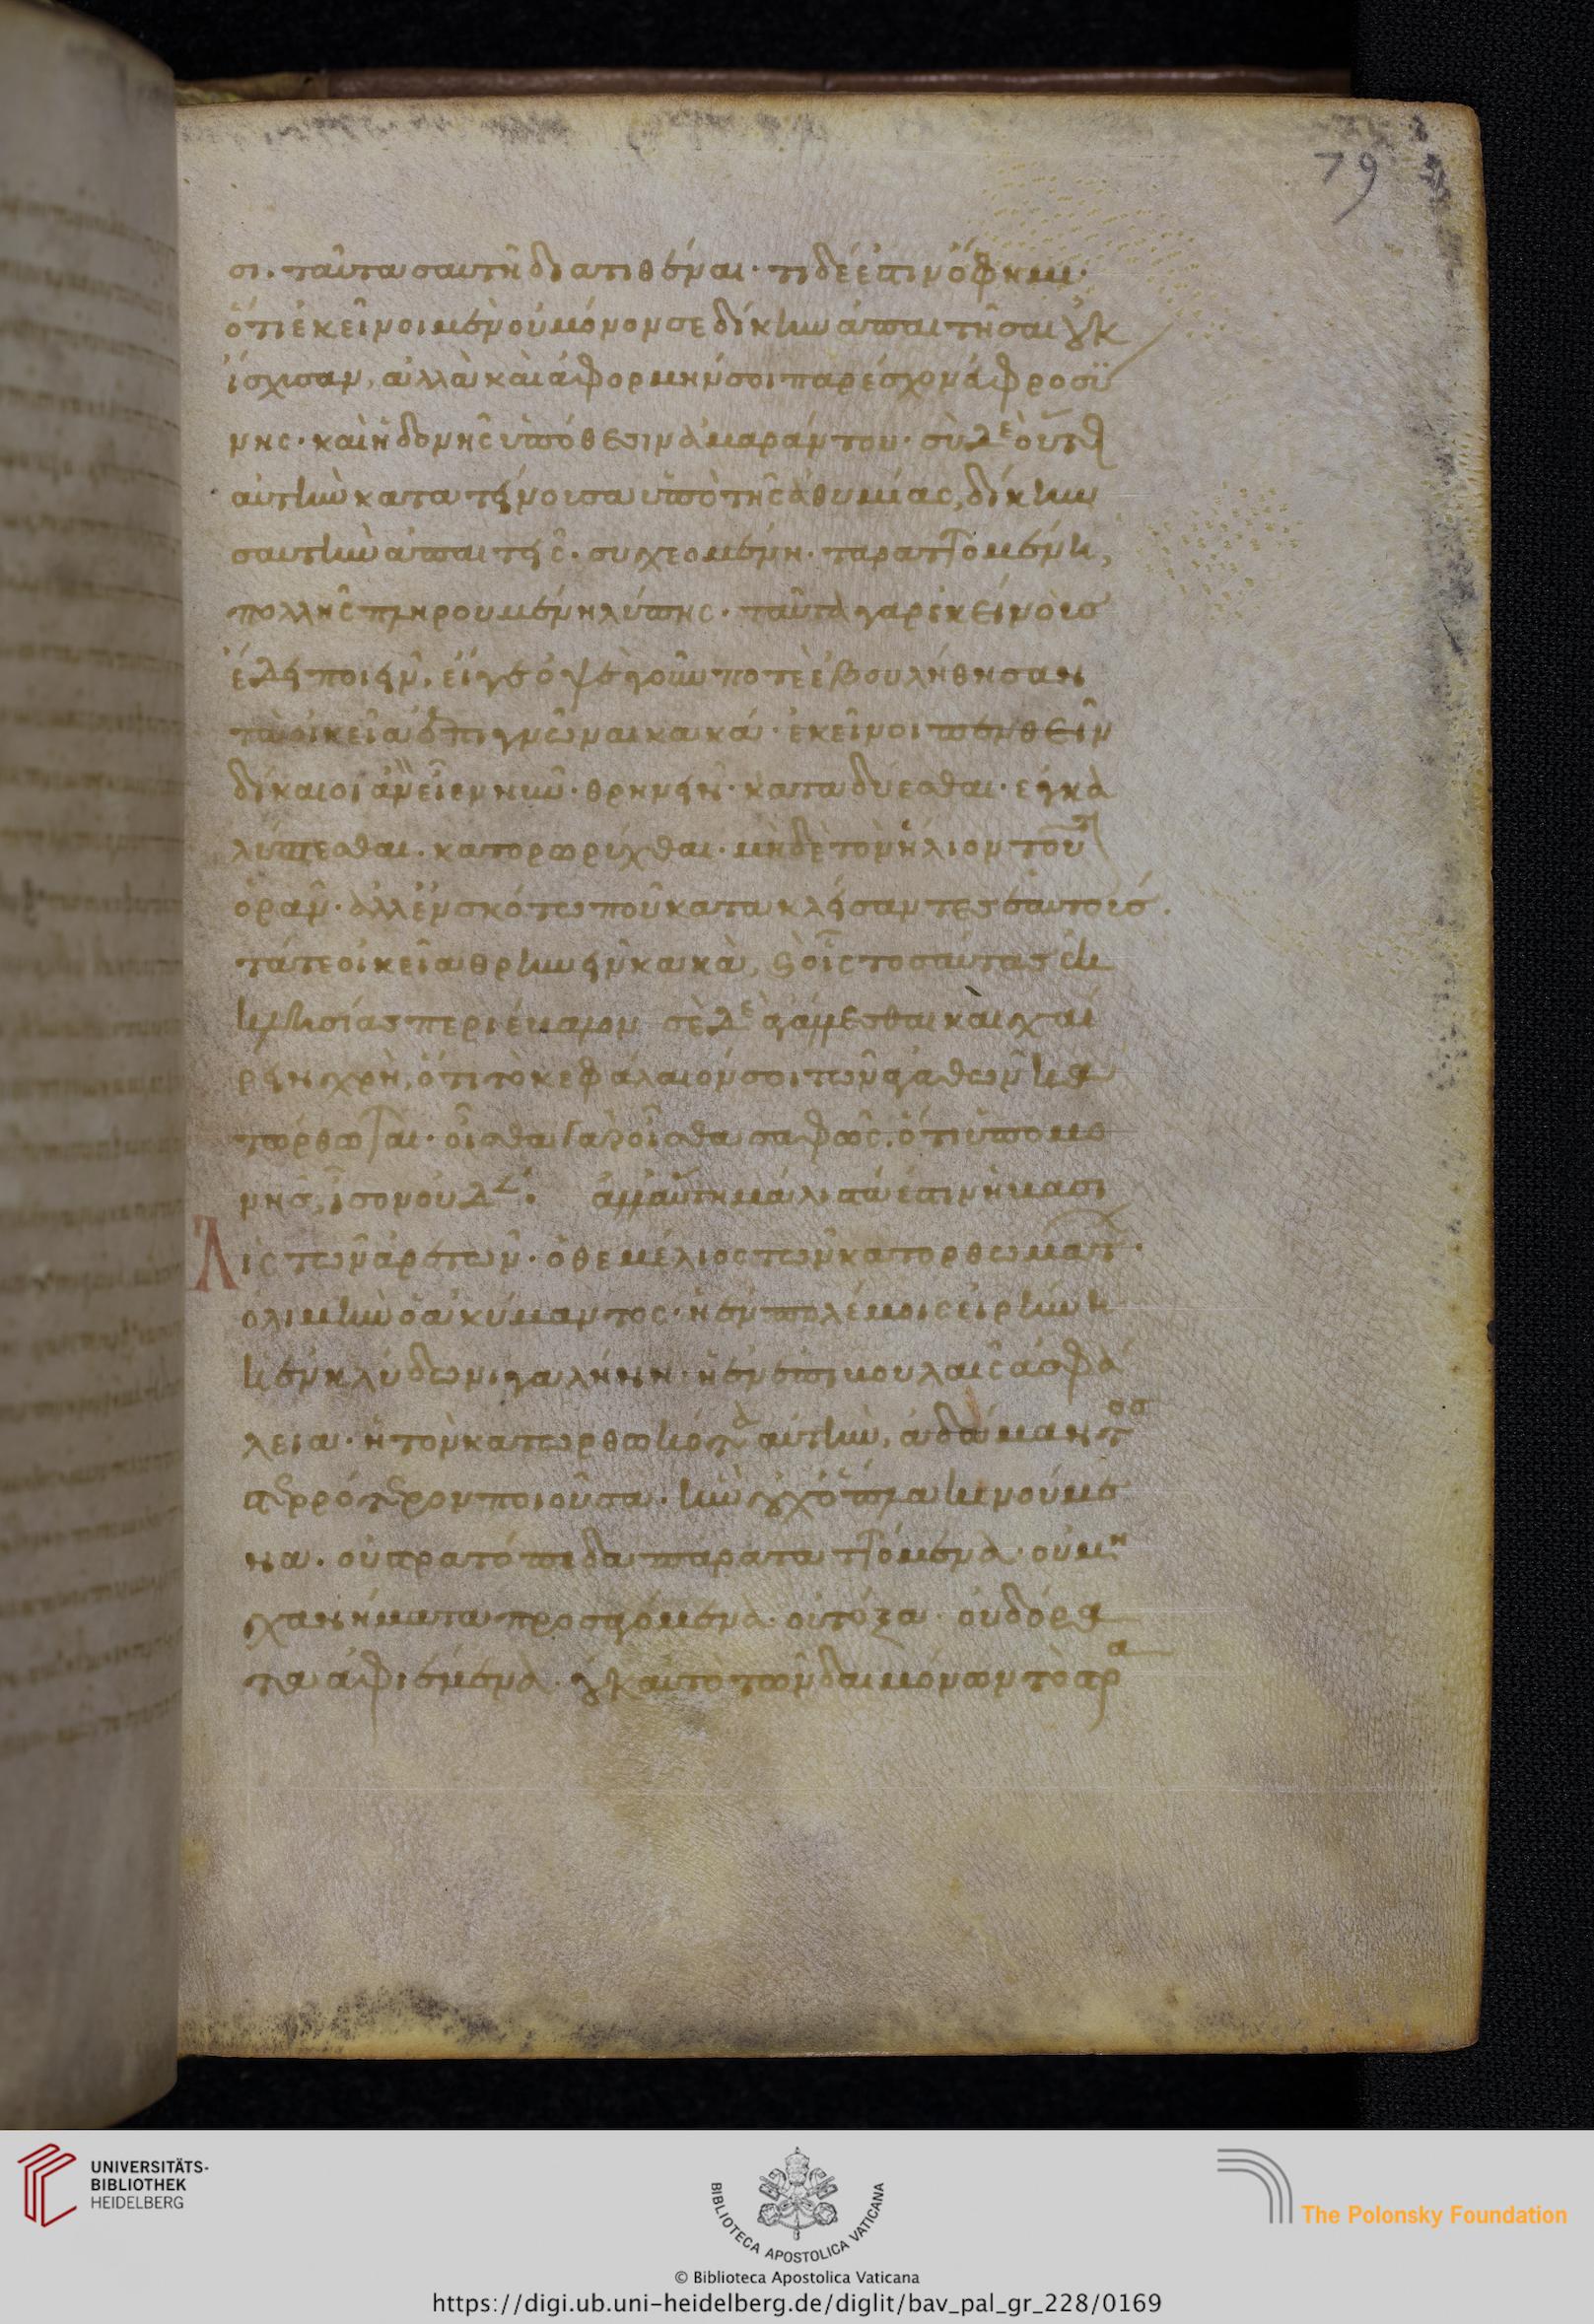 79
σι. ταῦτα σαυτὴ διατιθέναι· τί δέ ἐστιν ὅ φημι·
ὅτι ἐκεῖνοι μὲν οὐ μόνον σε δίκην ἀπαιτῆσαι οὐκ
ἴσχυσαν, ἀλλὰ καὶ ἀφορμήν σοι παρέσχον εὐφροσύ
νης· καὶ ἡδονῆς ὑπόθεσιν ἀμαράντου· σὺ δὲ οὕτως
αὐτὴν κατατείνουσα ὑπὸ τῆς ἀθυμίας, δίκην
σαυτὴν ἀπαιτεῖς· συγχεομένη· ταραττομένη,
πολλῆς πληρουμένη λύπης· ταῦτα γὰρ ἐκείνοις
ἔδει ποιεῖν, εἴγε ὀψὲ γοῦν ποτὲ ἐβουλήθησαν
τὰ οἰκεῖα ἐπιγνῶναι κακά· ἐκεῖνοι πενθεῖν
δίκαιοι ἂν εἶεν νῦν· θρηνεῖν· καταδύεσθαι· ἐγκα
λύπτεσθαι· κατορωρύχθαι· μηδὲ τὸν ἥλιον τοῦτον
ὁρᾶν· ἀλλ' ἐν σκότω που κατακλείσαντες ἑαυτούς·
τά τε οἰκεῖα θρηνεῖν κακὰ, καὶ οἷς τοσαύτας ἐκ
κλησίας περιέβαλον σὲ δὲ ἀγάλλεσθαι καὶ χαί
ρειν χρὴ, ὅτι τὸ κεφάλαιόν σοι τῶν ἀγαθῶν κα
τώρθωται· οἶσθα γὰρ οἶσθα σαφῶς, ὅτι ὑπομο
νῆς, ἴσον οὐδέν· ἀλλ' αὕτη μάλιστά ἐστιν ἡ βασι
λὶς τῶν ἀρετῶν· ὁ θεμέλιος τῶν κατορθωμάτων·
ὁ λιμὴν ὁ ἀκύμαντος· ἡ ἐν πολέμοις εἰρήνη·
ἡ ἐν κλύδωνι γαλήνη· ἡ ἐν ἐπιβουλαῖς ἀσφά
λεια· ἡ τὸν κατωρθωκότα αὐτὴν, ἀδάμαντος
στερρότερον ποιοῦσα· ἣν οὐχ ὅπλα κινούμε
να· οὐ στρατόπεδα παραταττόμενα· οὐ μη
χανήματα προσαγόμενα· οὐ τόξα· οὐ δόρα
τα ἀφιέμενα· οὐκ αὐτὸ τῶν δαιμόνων τὸ στρα
UNIVERSITÄTS-
BIBLIOTHEK
HEIDELBERG
BIBLIOTECA APOSTOLICA VATICANA
The Polonsky Foundation
© Biblioteca Apostolica Vaticana
https://digi.ub.uni-heidelberg.de/diglit/bav_pal_gr_228/0169